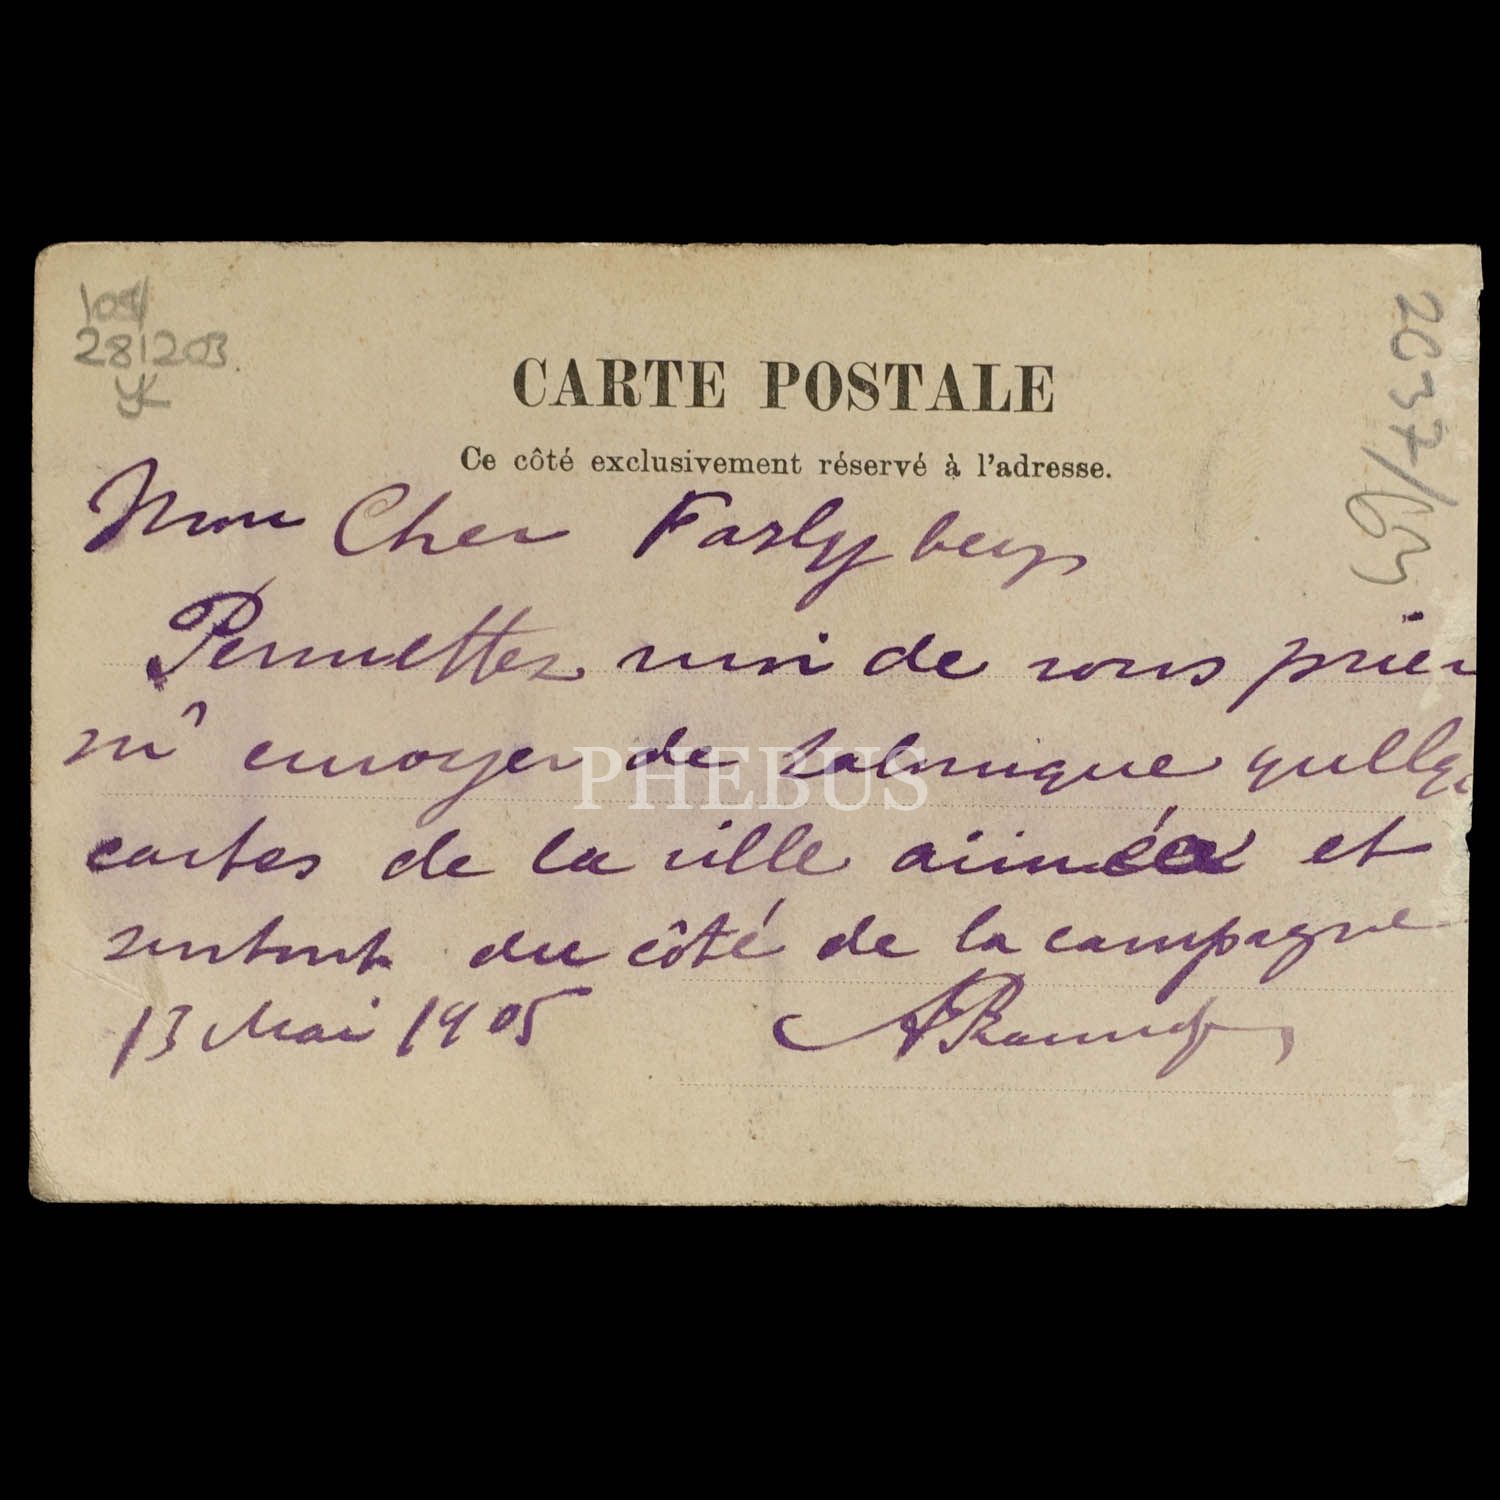 281203
YK
2C37/63
CARTE POSTALE
Ce côté exclusivement réservé à l'adresse.
Mon Cher Fazly bey
Permettez moi de vous prier
m'envoyer de Salonique quellq
cartes de la ville aimée et
surtout du côté de la campagne
13 Mai 1905
PHEBUS